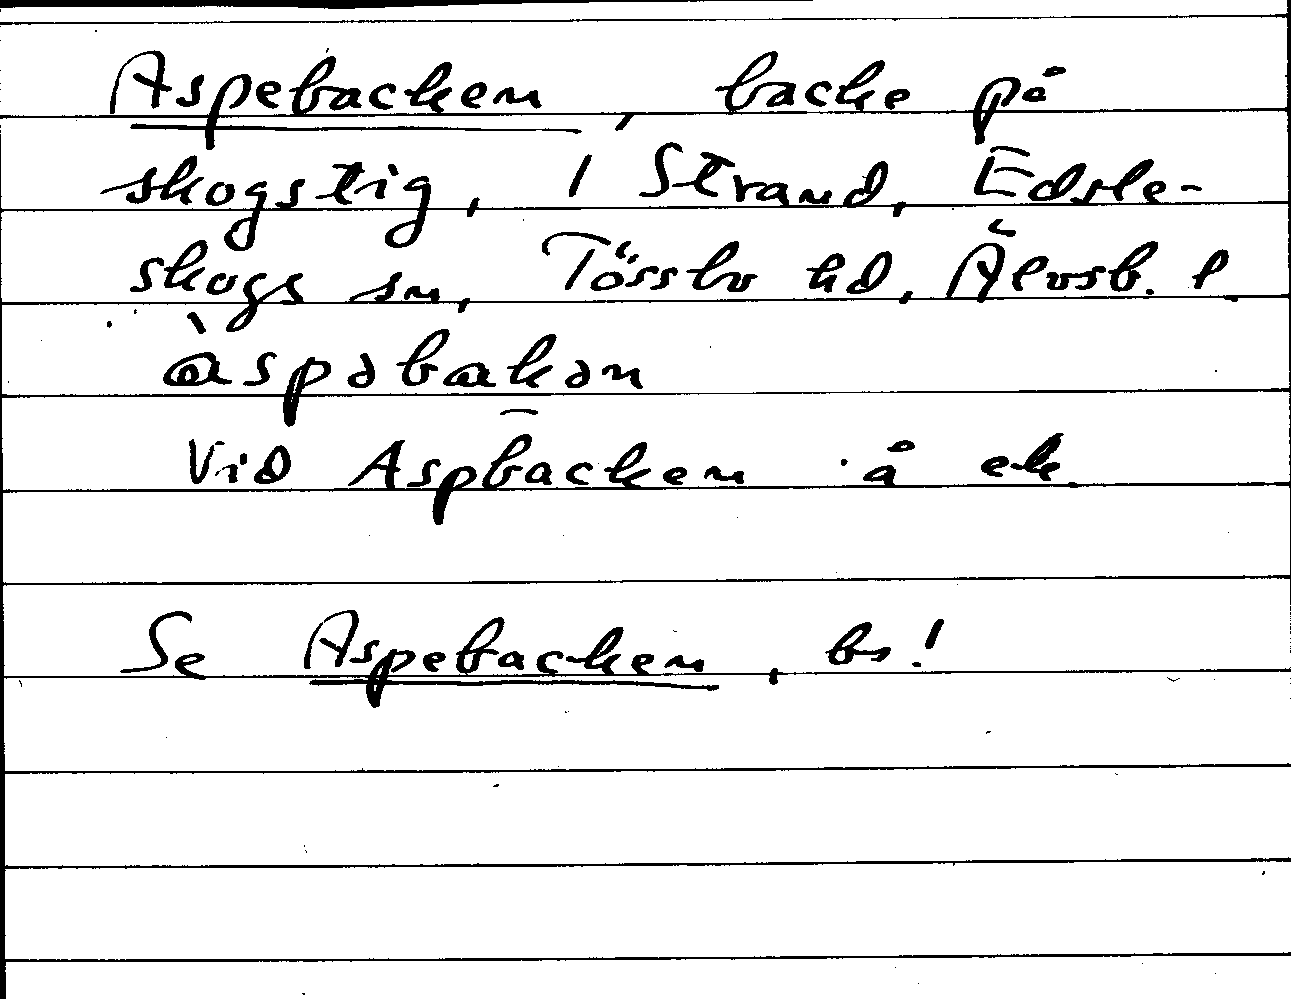 Aspebacken, backe på
skogstig, i Strand, Edsle-
skogs sn, Tössbo hd, Älvsb. l.
àspəbakən
Vid Aspbacken å ek.
Se Aspebacken, bs!